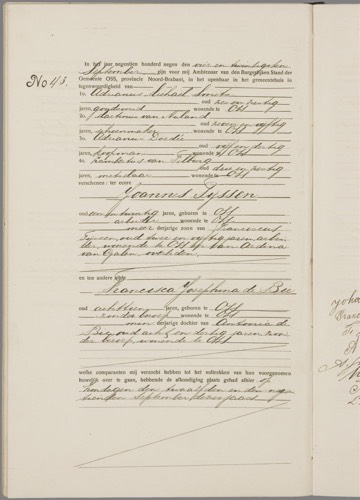 No 43.
In het jaar negentien honderd negen den vier en twintigsten
September zijn voor mij Ambtenaar van den Burgerlijken Stand der
Gemeente OSS, provincie Noord-Brabant, in het openbaar in het gemeentehuis in
tegenwoordigheid van
1o. Adrianus Michael Smits
oud zes en zestig
jaren, wonende te Oss
2o. Martinus van Nuland
oud zeven en vijftig
jaren, schoenmaker wonende te Oss
3o. Adrianus
oud vijf en dertig
jaren, koopman wonende te Oss
4o. van Tilburg
oud drie en zestig
jaren, metselaar wonende te Oss
verschenen: ter eenre
Joannes Tijssen
oud een en twintig jaren, geboren te Oss
arbeider wonende te Oss
meerderjarige zoon van Franciscus
Tijssen, oud twee en vijftig jaren, arbei
der, wonende te Oss en van Ardina
van Galen, overleden,
en ten andere zijde
Francisca Josephina de Bie
oud achttien jaren, geboren te Oss
zonder beroep wonende te Oss
minderjarige dochter van Antonia de
Bie, oud acht en dertig jaren, zon
der beroep, wonende te Oss,
welke comparanten mij verzocht hebben tot het voltrekken van hun voorgenomen
huwelijk over te gaan, hebbende de afkondiging plaats gehad alhier op
Zondagen den twaalfden en den nege
tienden September dezes jaars